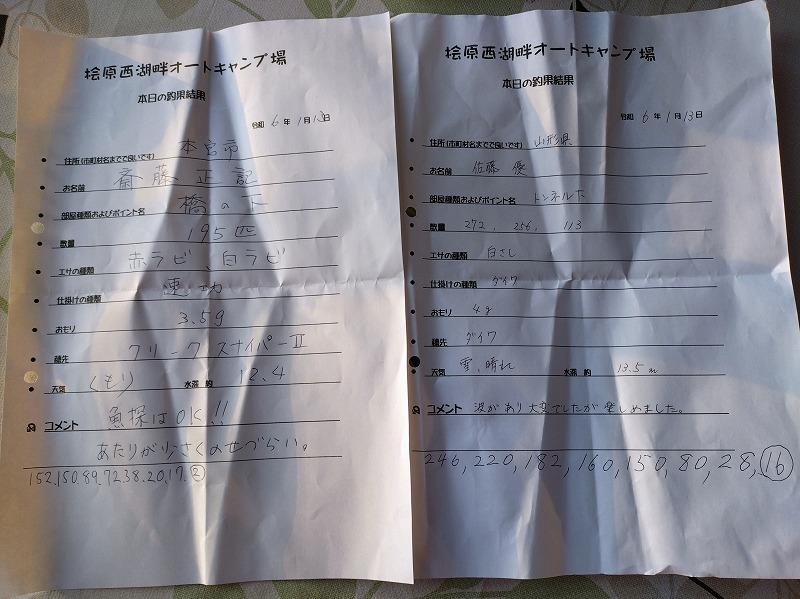 桧原西湖畔オートキャンプ場
本日の釣果結果
令和 6 年 1 月 13 日
住所(市町村名までで良いです) 本宮市
お名前 斎藤正記
部屋種類およびポイント名 橋の下
数量 195匹
エサの種類 赤ラビ、白ラビ
仕掛けの種類 速功
おもり 3.5g
穂先 クリークスナイパーⅡ
天気 くもり 水深 約 12.4
コメント 魚探はOK!!
あたりが小さくのせづらい。
152,150,89,72,38,20,17,②
桧原西湖畔オートキャンプ場
本日の釣果結果
令和 6 年 1 月 13 日
住所(市町村名までで良いです) 山形県
お名前 佐藤 優
部屋種類およびポイント名 トンネル下
数量 272, 256, 113
エサの種類 白さし
仕掛けの種類 ダイワ
おもり 4g
穂先 ダイワ
天気 雪、晴れ 水深 約 13.5m
コメント 波があり大変でしたが楽しめました。
246,220,182,160,150,80,28,⑯